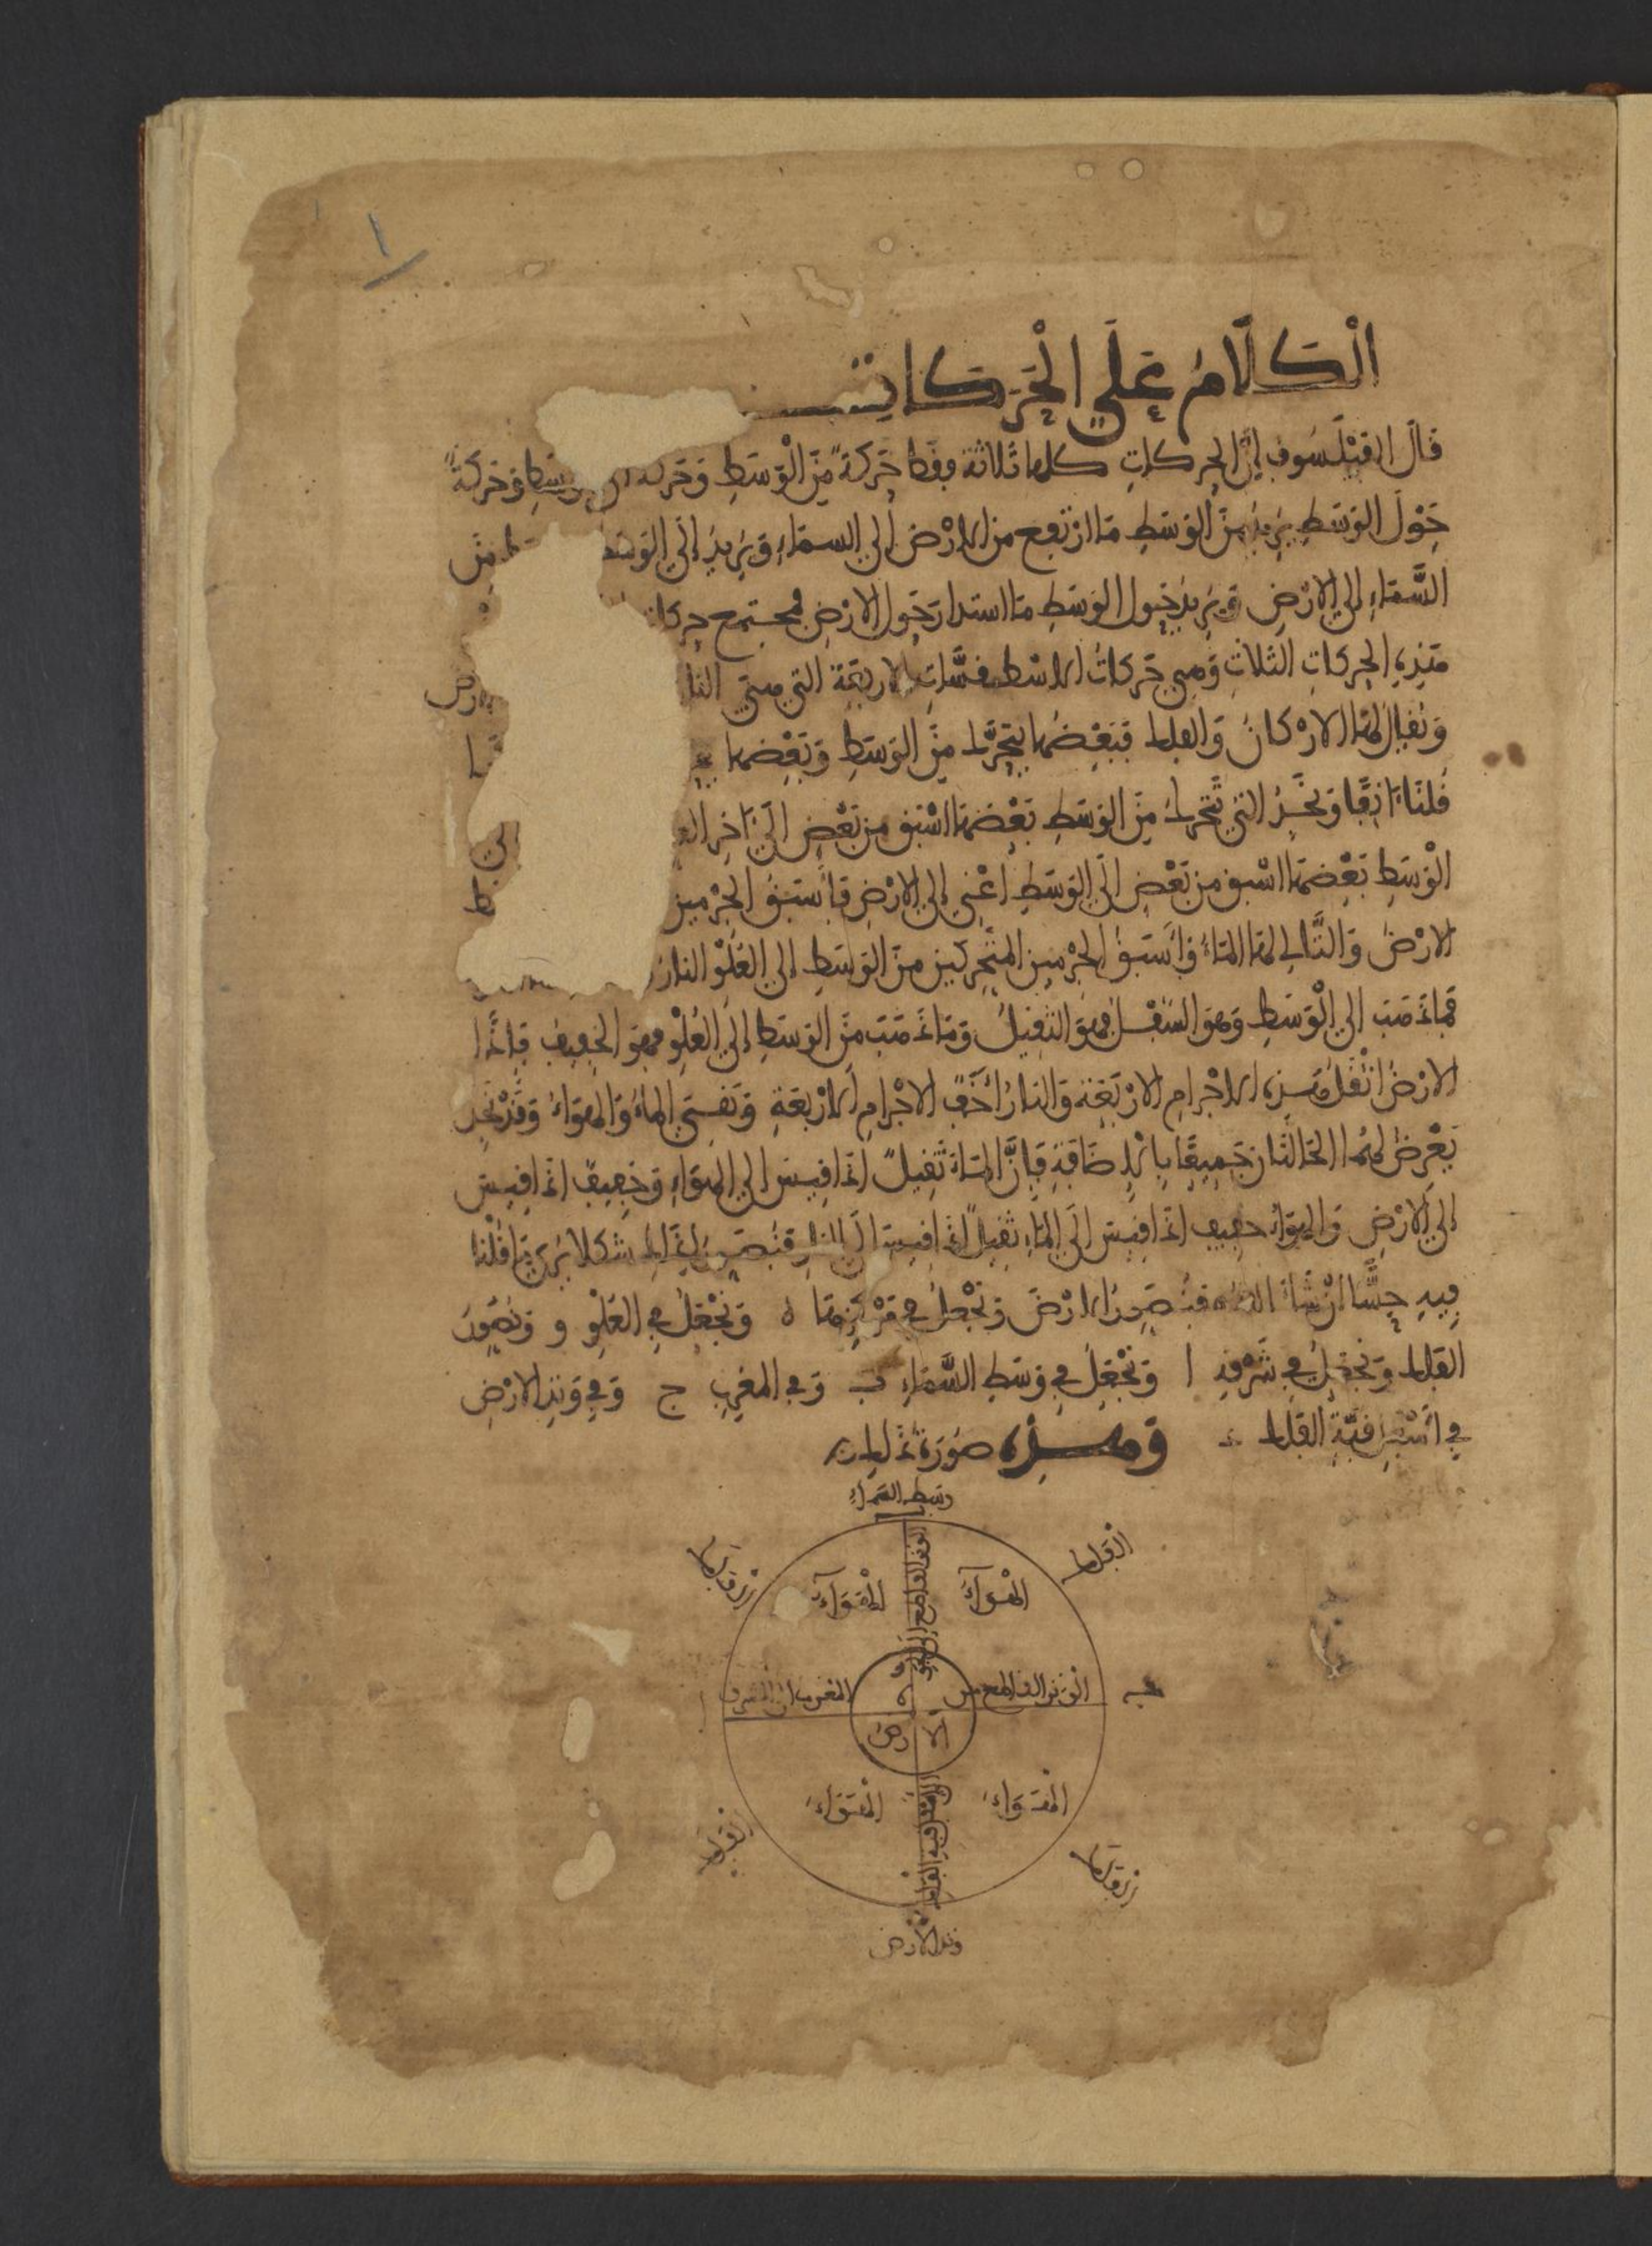 ١
الْكَلَامُ عَلَى الْحَرَكَاتِ
قَالَ الفَيْلَسُوف إنَّ الحركاتِ كلها ثَلاثة فقط حَرَكَةً مِّنَ الْوَسَطِ وَحَركة وسَطِ وَحَرَكَةً
حَوْلَ الوَسَطِ يُرِيدُ مِنَ الوَسَطِ مَا ارْتَفِع من الارْضِ إلى السماءِ وَيُرِيدُ إلَى الوَسَط مِنَ
السَّمَاءِ إلى الارْضِ وَيُرِيدُ حَوْلِ الوَسَطِ مَا استدارَ حَوْل الارْضِ فجميع حركا
هَذِهِ الحركاتِ الثلاثِ وَهي حَرَكاتُ الاسْطقسَّاتِ الاربَعَة التي هيَ النا رض
وَيُقالُ لهَا الارْكانُ وَالفلك فَبَعْضُها يتحَرَّك مِنَ الوَسَطِ وَبَعْضها
قُلْنَا ءَانِفًا وَنَجِدُ التي تَتَحَركُ مِنَ الوَسَطِ بَعْضَهَا اسْبَق من بَعْضٍ الَى ءَاخِر
الْوَسَطِ بَعْضَهَا اسْبَق من بَعْضٍ الَى الوَسَطِ اعْنِي إلى الارْضِ فأسْبَقُ الجرْمين
الارْضُ وَالتَّالِي لهَا المَاءُ وَأسْبَقُ الجرْمين المتَحَرِكين منَ الوَسَطِ إلى العُلوِ النارُ
فمَا ذَهَبَ إلى الْوَسَطِ وَهوَ السُّفْل فهوَ الثقيلُ وَمَا ذَهَبَ مِنَ الوَسَطِ إلَى العُلوِ فهوَ الخفِيفُ فإذًا
الارْضُ اثْقَلُ هَذِهِ الاجْرامِ الارْبَعَة وَالنارُ أَخَفُ الاجْرامِ الارْبَعَةِ وَبَقِيَ المَاءُ وَالهَوَاءُ وَقَدْ نَجِد
يَعْرِضُ لهُمَا الحالتَان جَمِيعًا بِالاِضَافَةِ فَإنَّ المَاءَ ثَقِيلٌ اذَا قِيسَ إلى الهَوَاءِ وَخَفِيفٌ اذَا قِيسَ
إلى الارْضِ وَالهَوَاءُ خفيف اذَا قِيسَ إلَى المَاءِ ثَقِيلٌ اذَا قِيسَ الَى النارِ فَنُصَوِرُ لِذَلِك شكلا يُرَى مَا قُلْنا
فِيهِ حِسًّا انْ شَاءَ اللهُ فَنُصَوِرُ الارْضَ وَنَجْعَلُ في مَرْكَزِهَا ه وَنَجْعَلُ في العُلْوِ و وَنُصَوِرُ
الفَلك وَنَجْعَلُ في شَرْقِهِ ا وَنَجْعَلُ في وَسَطِ السَّمَاءِ ب وَفي المغْرِبِ ج وَفي وَتِدِ الارْضِ
في اسْفَلِ قُبَّةِ الفَلك د وَهـذِهِ صُورَةُ ذَلِك
وَسَط السَّمَاءِ
الفَلك
الهَوَاءُ
الهَوَاءُ
الارض
الهَوَاءُ
الهَوَاءُ
الفلك
وتد الارض